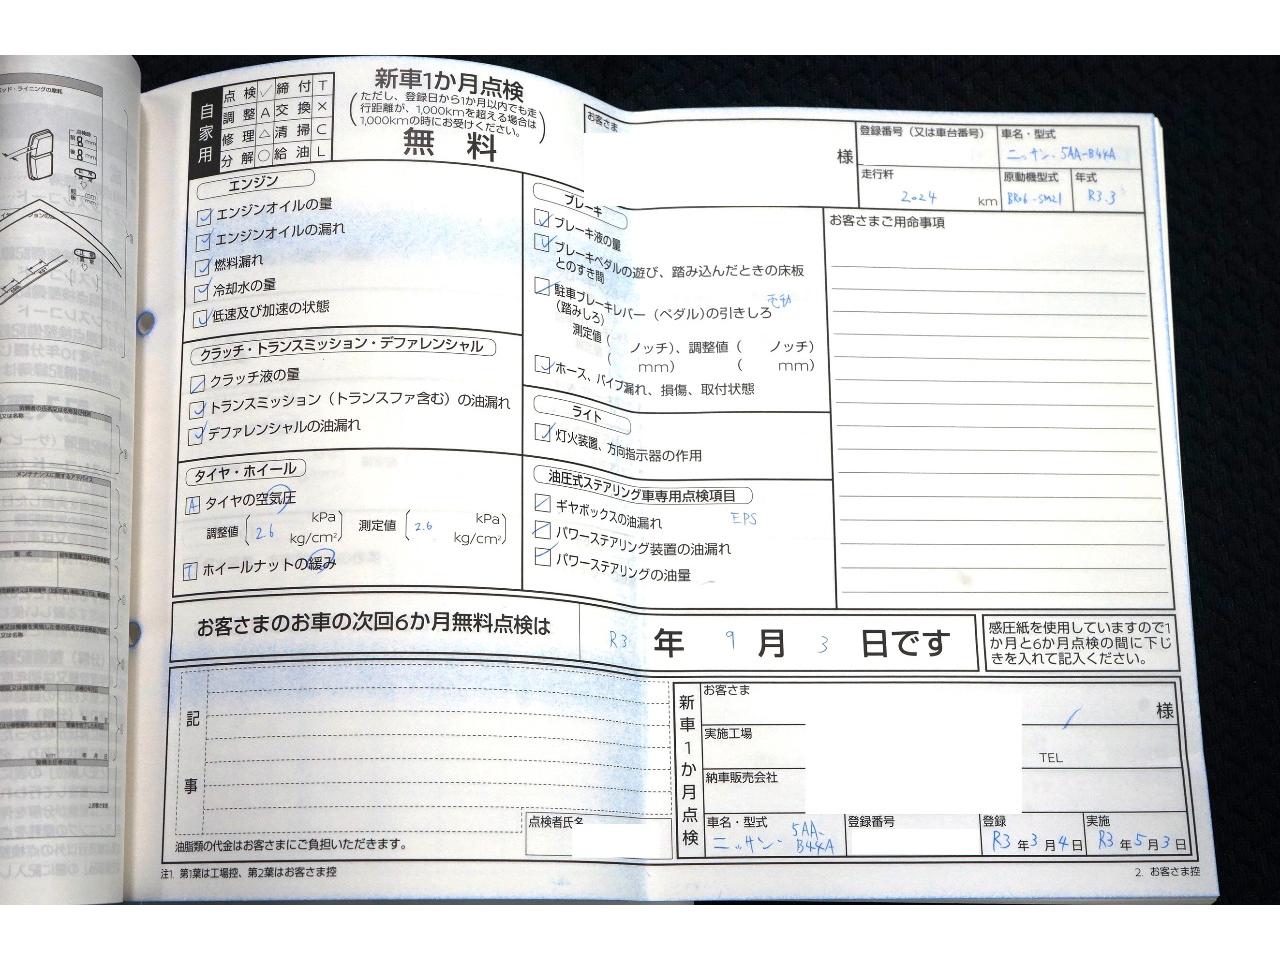 自家用
点検 ✓ 締付 T
調整 A 交換 ×
修理 △ 清掃 C
分解 ○ 給油 L
新車1か月点検
(ただし、登録日から1か月以内でも走
行距離が、1,000kmを超える場合は
1,000kmの時にお受けください。)
無料
お客さま
様
登録番号（又は車台番号）
車名・型式
ニッサン・5AA-B44A
走行粁
2024 km
原動機型式
BR06-SM21
年式
R3.3
エンジン
エンジンオイルの量
エンジンオイルの漏れ
燃料漏れ
冷却水の量
低速及び加速の状態
クラッチ・トランスミッション・デファレンシャル
クラッチ液の量
トランスミッション（トランスファ含む）の油漏れ
デファレンシャルの油漏れ
タイヤ・ホイール
A タイヤの空気圧
調整値 ( 2.6 kPa kg/cm²) 測定値 ( 2.6 kPa kg/cm²)
T ホイールナットの緩み
ブレーキ
ブレーキ液の量
ブレーキペダルの遊び、踏み込んだときの床板
とのすき間
駐車ブレーキレバー（ペダル）の引きしろ
(踏みしろ)
電動
測定値 ( ノッチ)、調整値 ( ノッチ)
( mm) ( mm)
ホース、パイプ漏れ、損傷、取付状態
ライト
灯火装置、方向指示器の作用
油圧式ステアリング車専用点検項目
ギヤボックスの油漏れ
EPS
パワーステアリング装置の油漏れ
パワーステアリングの油量
お客さまご用命事項
お客さまのお車の次回6か月無料点検は R3 年 9 月 3 日です
感圧紙を使用していますので1
か月と6か月点検の間に下じ
きを入れて記入ください。
記事
点検者氏名
油脂類の代金はお客さまにご負担いただきます。
新車1か月点検
お客さま
様
実施工場
TEL
納車販売会社
車名・型式
ニッサン・5AA-
B44A
登録番号
登録
R3 年 3 月 4 日
実施
R3 年 5 月 3 日
注1. 第1葉は工場控、第2葉はお客さま控
2. お客さま控